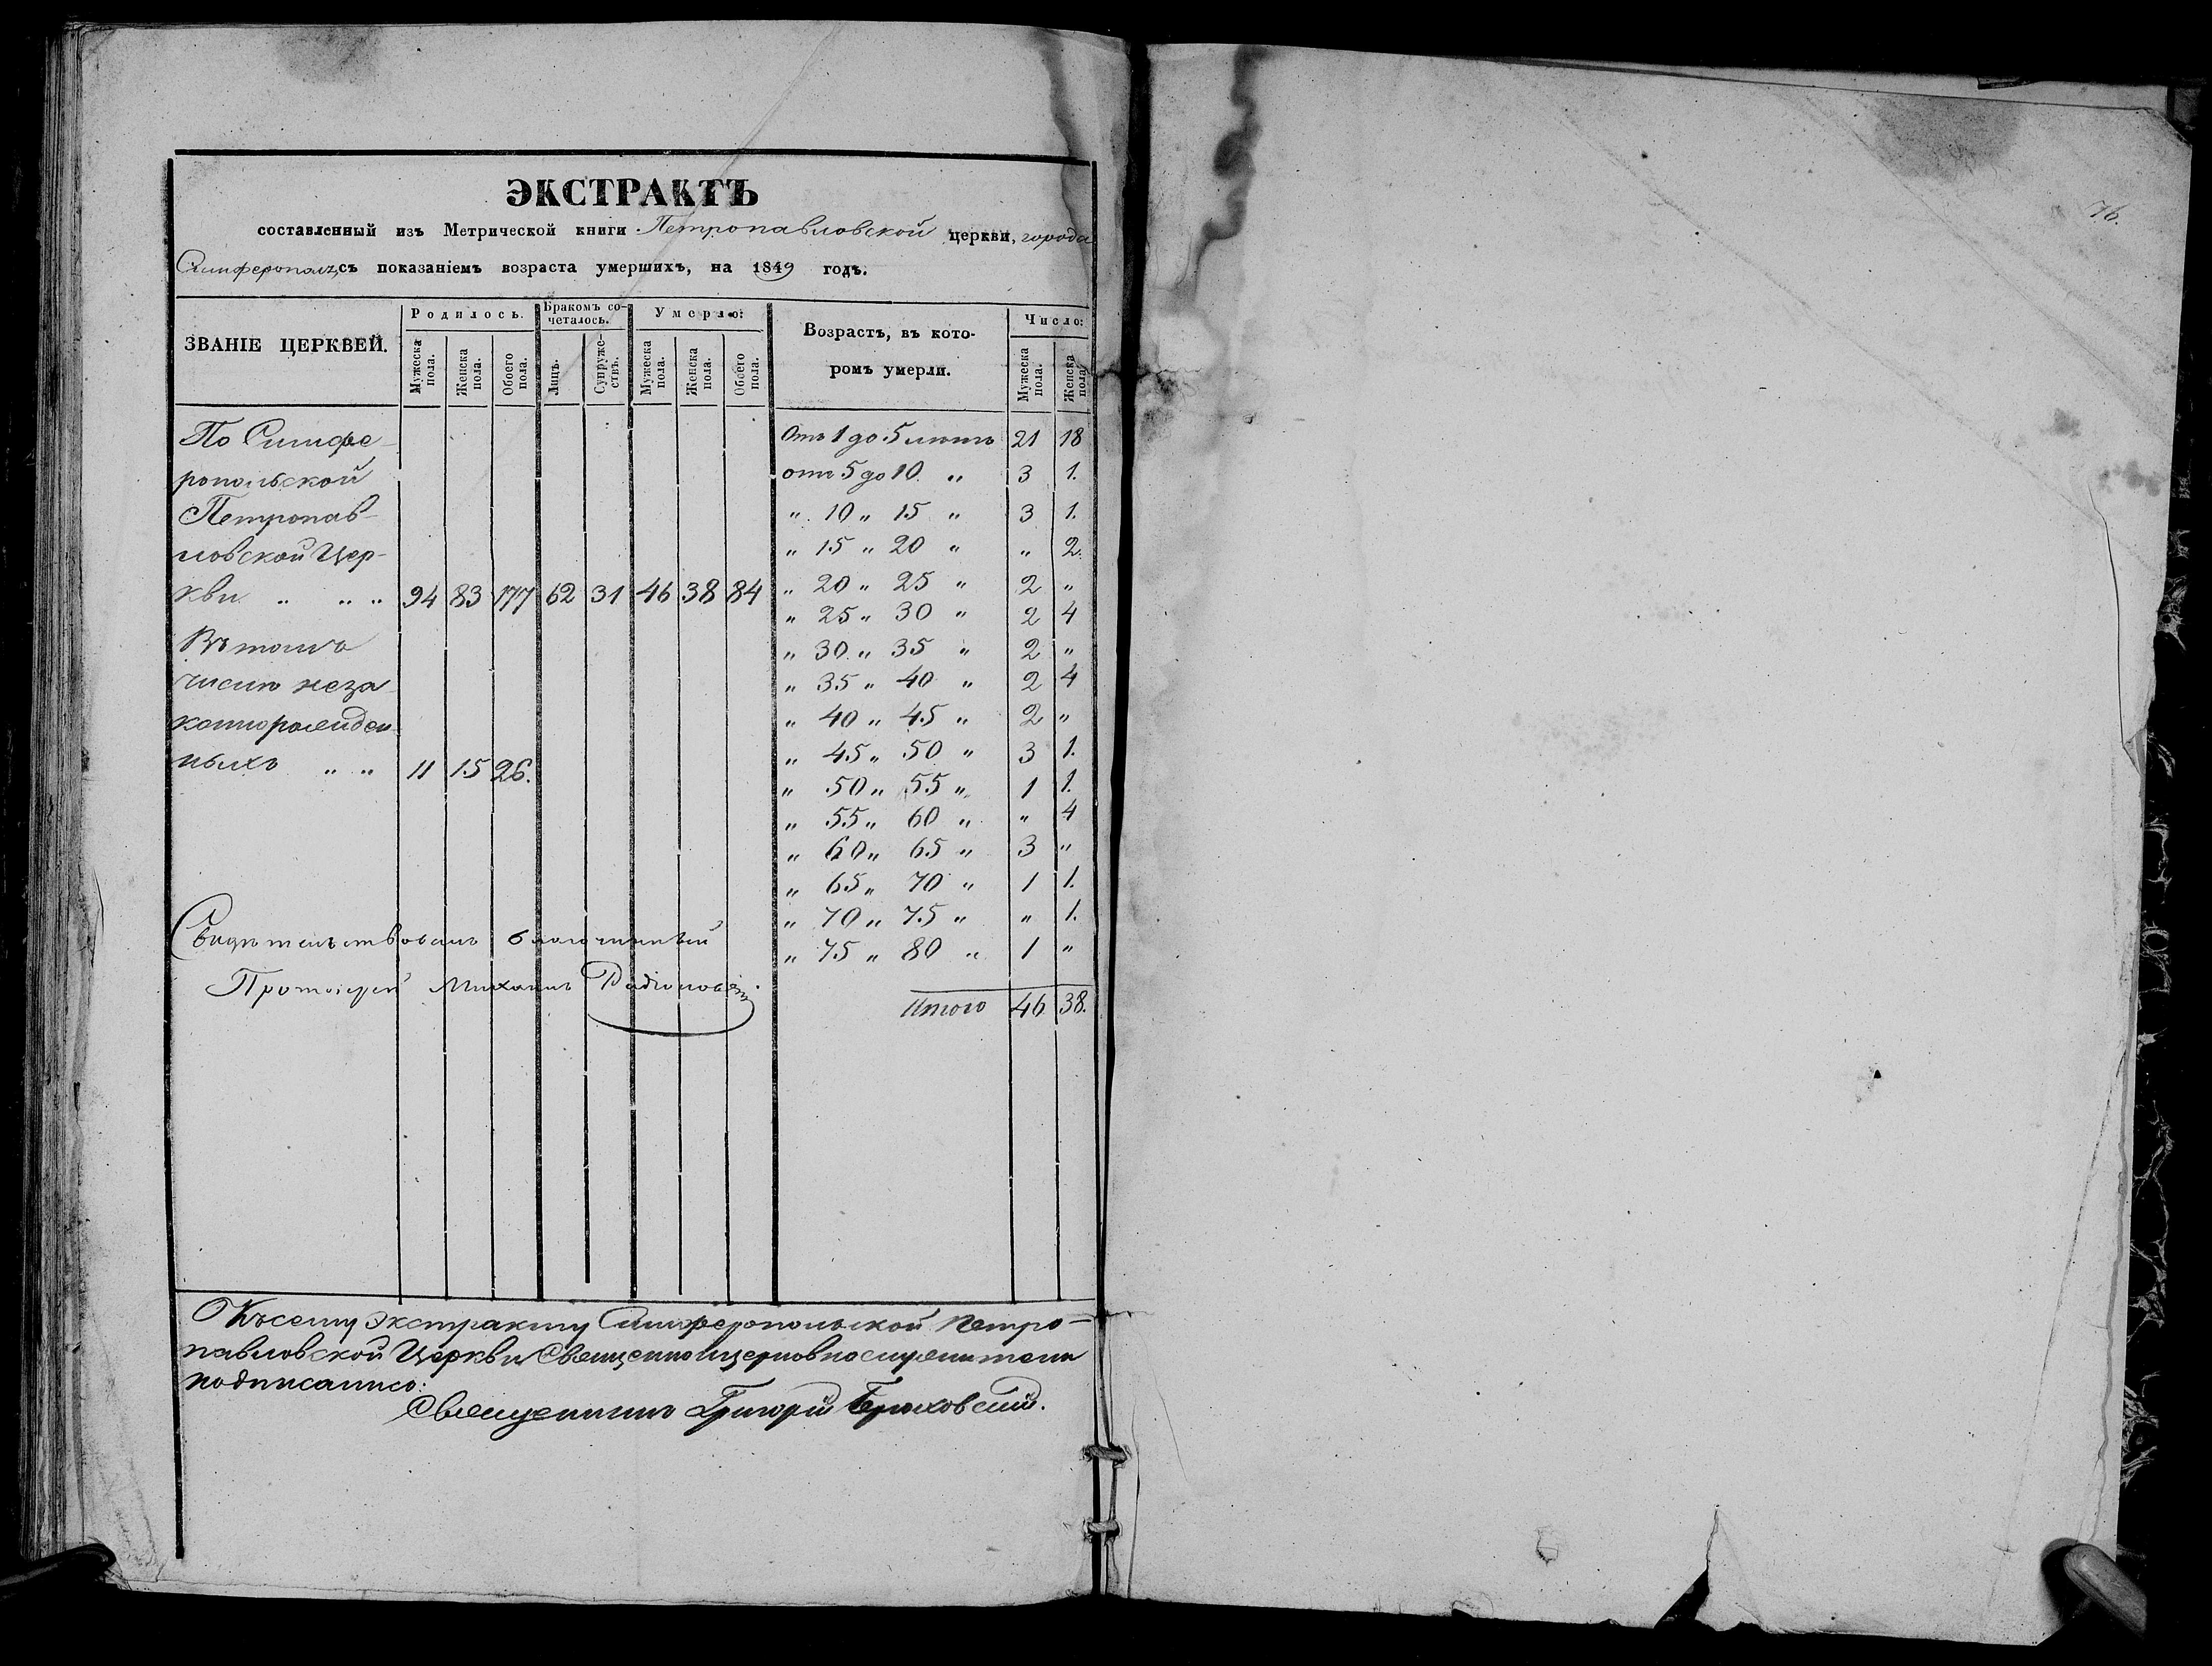 ЭКСТРАКТЪ
составленный изъ Метрической книги Петропавловской церкви, города
Симферополя, съ показаніемъ возраста умершихъ, на 1849 годъ.
ЗВАНІЕ ЦЕРКВЕЙ.
Родилось.
Мужеска пола.
Женска пола.
Обоего пола.
Бракомъ со-
четалось.
Лицъ.
Супруже-
ствъ.
Умерло:
Мужеска пола.
Женска пола.
Обоего пола.
Возрастъ, въ кото-
ромъ умерли.
Число:
Мужеска пола.
Женска пола.
По Симфе-
ропольской
Петропав-
ловской Цер-
кви „ „ „ 94 83 177 62 31 46 38 84
Въ томъ
числѣ неза
коннорожден
ныхъ „ „ 11 15 26.
Отъ 1 до 5 лѣтъ 21 18
отъ 5 до 10 „ 3 1.
„ 10 „ 15 „ 3 1.
„ 15 „ 20 „ „ 2.
„ 20 „ 25 „ 2 „
„ 25 „ 30 „ 2 4
„ 30 „ 35 „ 2 „
„ 35 „ 40 „ 2 4
„ 40 „ 45 „ 2 „
„ 45 „ 50 „ 3 1.
„ 50 „ 55 „ 1 1.
„ 55 „ 60 „ „ 4
„ 60 „ 65 „ 3 „
„ 65 „ 70 „ 1 1.
„ 70 „ 75 „ „ 1.
„ 75 „ 80 „ 1 „
Итого 46 38.
Свидѣтельствовалъ благочинный
Протоіерей Михаилъ Родіоновъ
Къ сему экстракту Симферопольской Петро-
павловской Церкви Священно и церковнослужители
подписались:
Священникъ Григорій Бряховскій.
76.